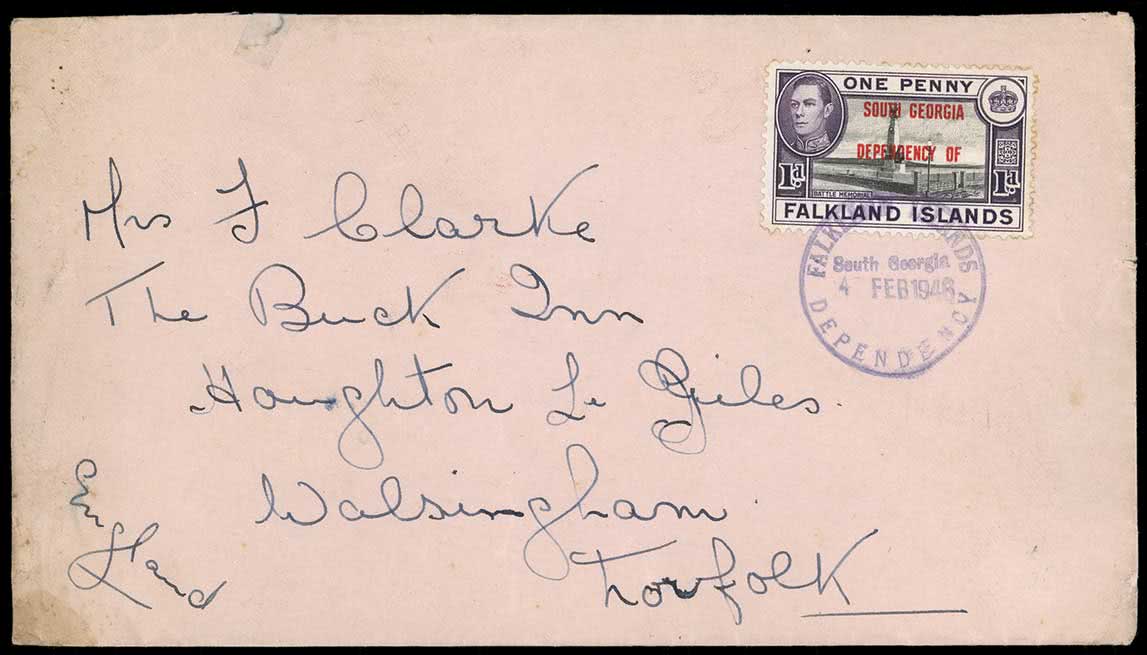 ONE PENNY
SOUTH GEORGIA
DEPENDENCY OF
1d 1d
BATTLE MEMORIAL
FALKLAND ISLANDS
FALKLAND ISLANDS
South Georgia
4 FEB 1946
DEPENDENCY
Mrs F Clarke
The Buck Inn
Houghton Le Giles
Walsingham
Norfolk
England